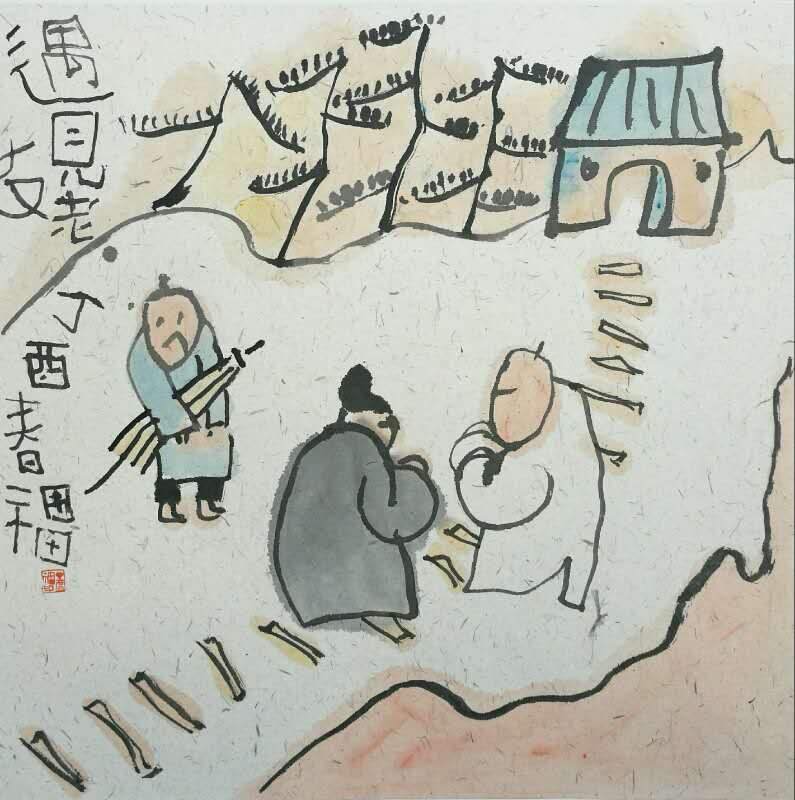 遇見老
友
丁酉春福